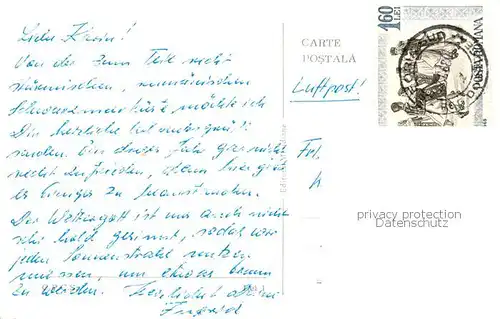 Liebe Karin!
Von der zum Teil recht
stürmischen, rumänischen
Schwarzmeerküste möchte ich
Dir herzliche Urlaubsgrüße
senden. Bin dieses Jahr gar nicht
recht zufrieden, denn hier gibt
es Einiges zu beanstanden.
Der Wettergott ist uns auch nicht
sehr hold gesinnt, sodaß wir
jeden Sonnenstrahl nutzen
müssen, um etwas braun
zu werden. Herzlichst Deine
Ingrid
CARTE
POSTALĂ
Luftpost!
Frl.
K
160
LEI
POSTA ROMANA
privacy protection
Datenschutz